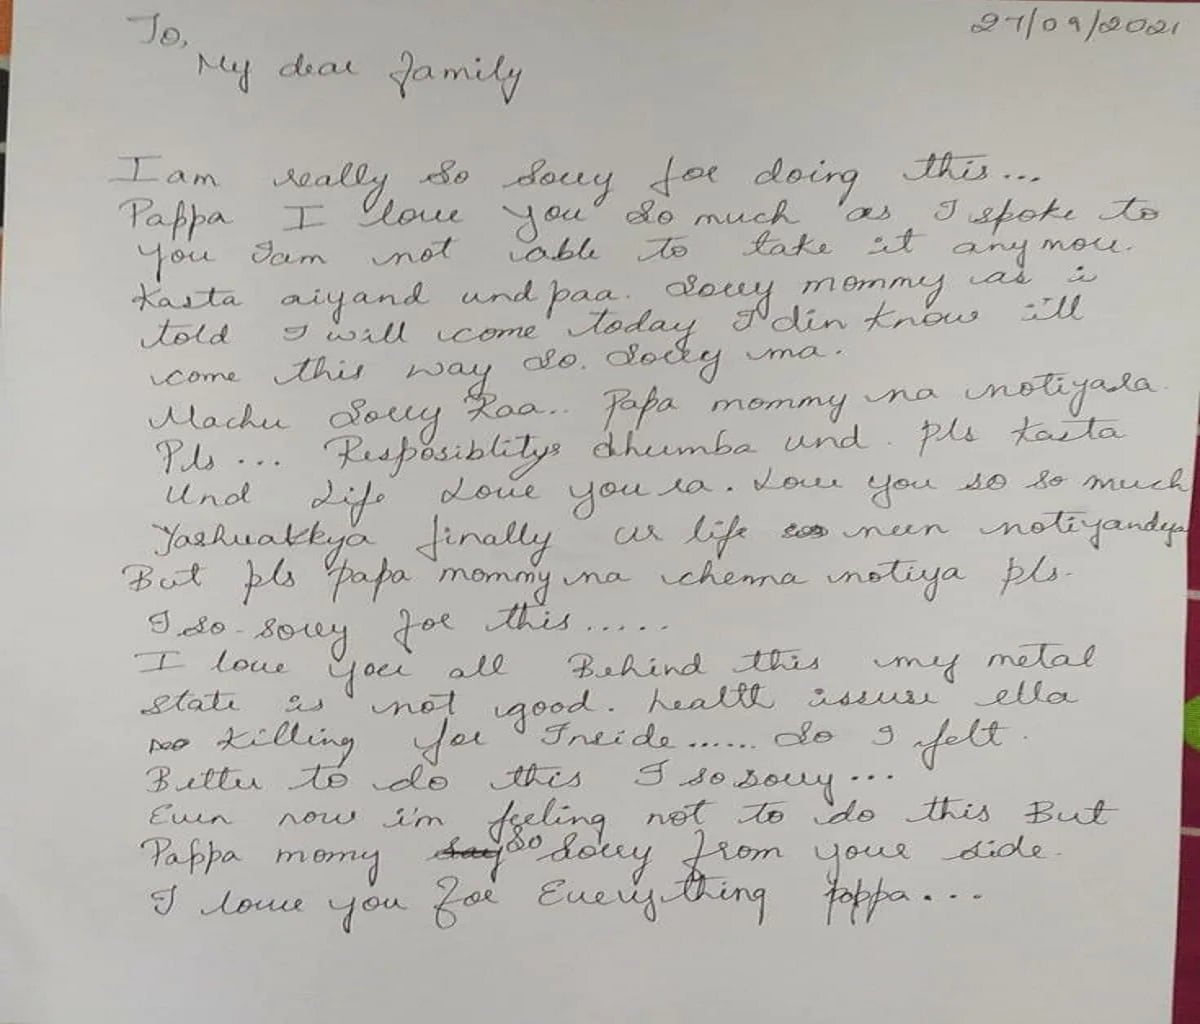 27/09/2021
To,
My dear family
I am really so sorry for doing this...
Pappa I love you so much as I spoke to
you Iam not able to take it anymore.
Kasta aiyand und paa. Sorry mommy as i
told I will come today I din know ill
come this way so. Sorry ma.
Machu Sorry Raa.. Papa mommy na notiyara.
Pls ... Resposiblitys dhumba und. pls kasta
Und life Love you ra. Love you so so much
Yashuakkya finally ur life neen notiyandya
But pls papa mommy na chenna notiya pls.
I so sorry for this.....
I love you all Behind this my metal
state is not good. health issuse ella
killing for Inside...... So I felt.
Better to do this I so sorry...
Even now i'm feeling not to do this But
Pappa momy so Sorry from your side.
I love you for Everything pappa...